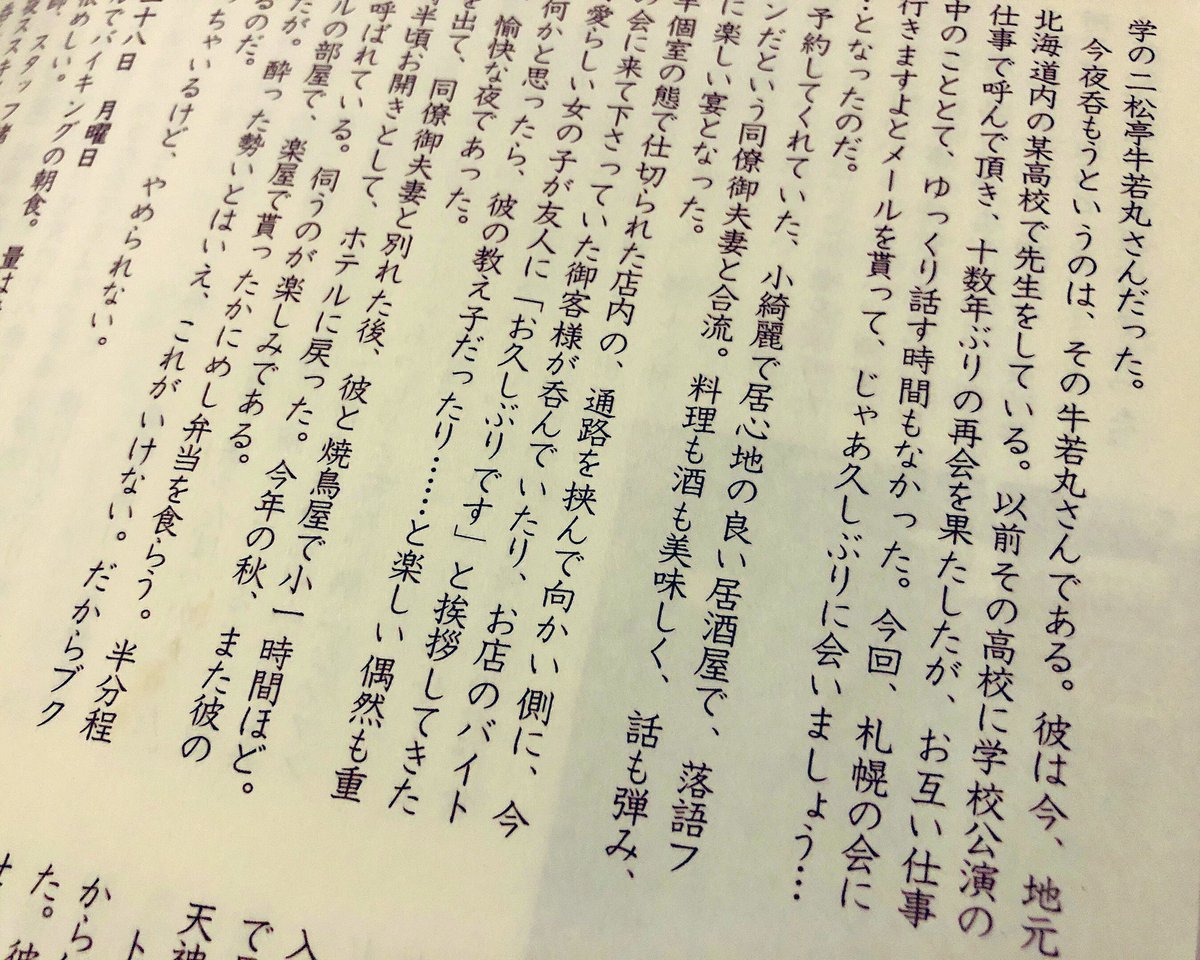 学の二松亭牛若丸さんだった。
今夜呑もうというのは、その牛若丸さんである。彼は今、地元
北海道内の某高校で先生をしている。以前その高校に学校公演の
仕事で呼んで頂き、十数年ぶりの再会を果たしたが、お互い仕事
中のこととて、ゆっくり話す時間もなかった。今回、札幌の会に
行きますよとメールを貰って、じゃあ久しぶりに会いましょう…
…となったのだ。
予約してくれていた、小綺麗で居心地の良い居酒屋で、落語フ
ンだという同僚御夫妻と合流。料理も酒も美味しく、話も弾み、
に楽しい宴となった。
半個室の態で仕切られた店内の、通路を挟んで向かい側に、今
の会に来て下さっていた御客様が呑んでいたり、お店のバイト
愛らしい女の子が友人に「お久しぶりです」と挨拶してきた
何かと思ったら、彼の教え子だったり……と楽しい偶然も重
愉快な夜であった。
を出て、同僚御夫妻と別れた後、彼と焼鳥屋で小一時間ほど。
半頃お開きとして、ホテルに戻った。今年の秋、また彼の
呼ばれている。伺うのが楽しみである。
ルの部屋で、楽屋で貰ったかにめし弁当を食らう。半分程
たが。酔った勢いとはいえ、これがいけない。だからブク
るのだ。
っちゃいるけど、やめられない。
二十八日 月曜日
でバイキングの朝食。量は
入
で
天神
ト
から
た。彼